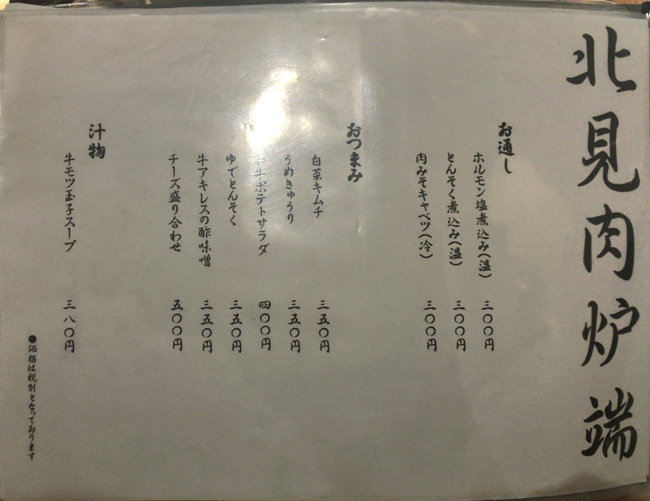 北見肉炉端
お通し
ホルモン塩煮込み(温) 三〇〇円
とんそく煮込み(温) 三〇〇円
肉みそキャベツ(冷) 三〇〇円
おつまみ
白菜キムチ 三五〇円
うめきゅうり 三五〇円
牛ポテトサラダ 四〇〇円
ゆでとんそく 三五〇円
牛アキレスの酢味噌 三五〇円
チーズ盛り合わせ 五〇〇円
汁物
牛モツ玉子スープ 三八〇円
●価格は税別となっております